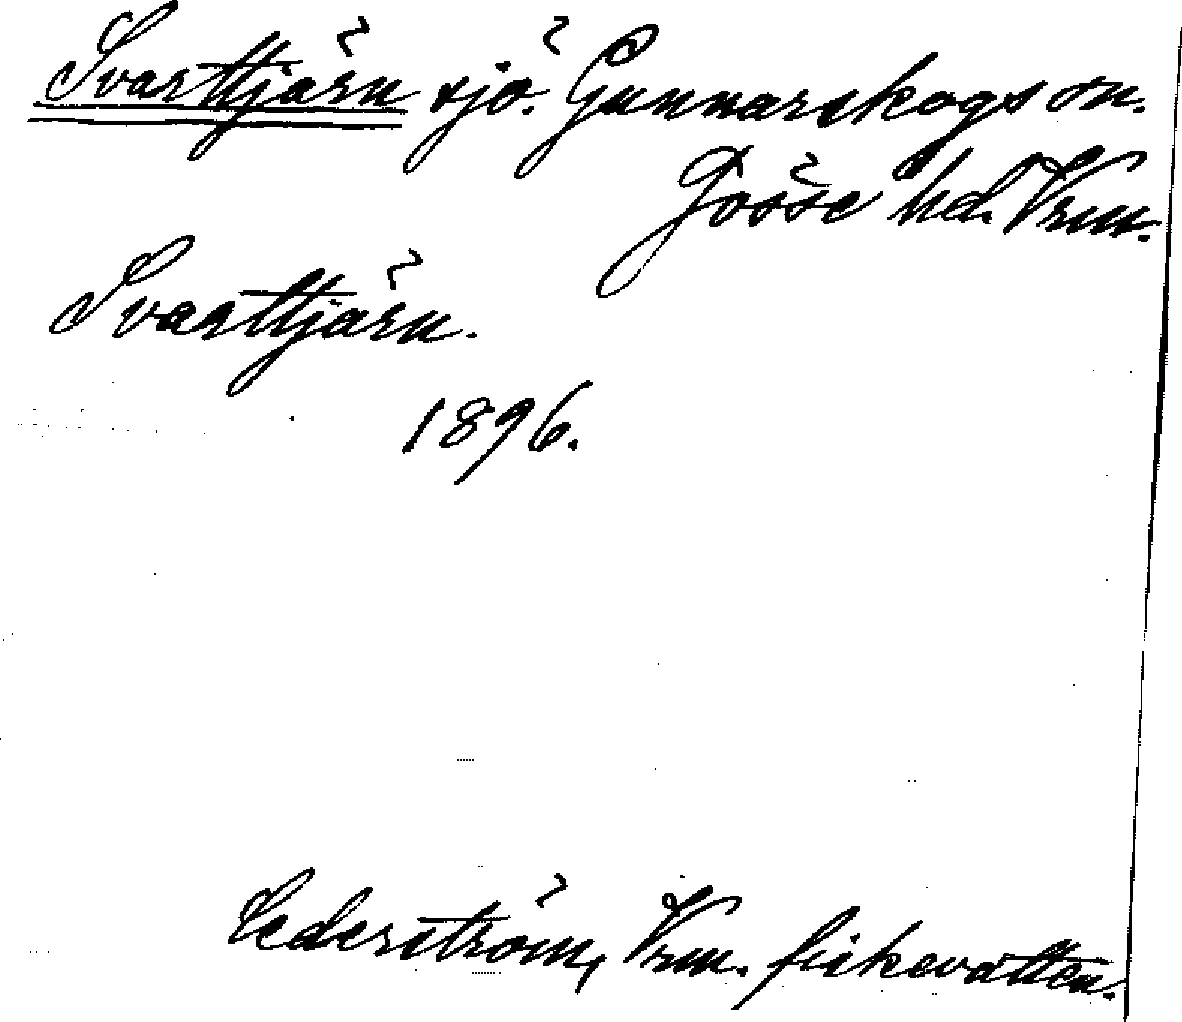 Svarttjärn sjö. Gunnarskogs sn.
Jösse hd. Vrm.
Svarttjärn.
1896.
Cederström, Vrm. fiskevatten.